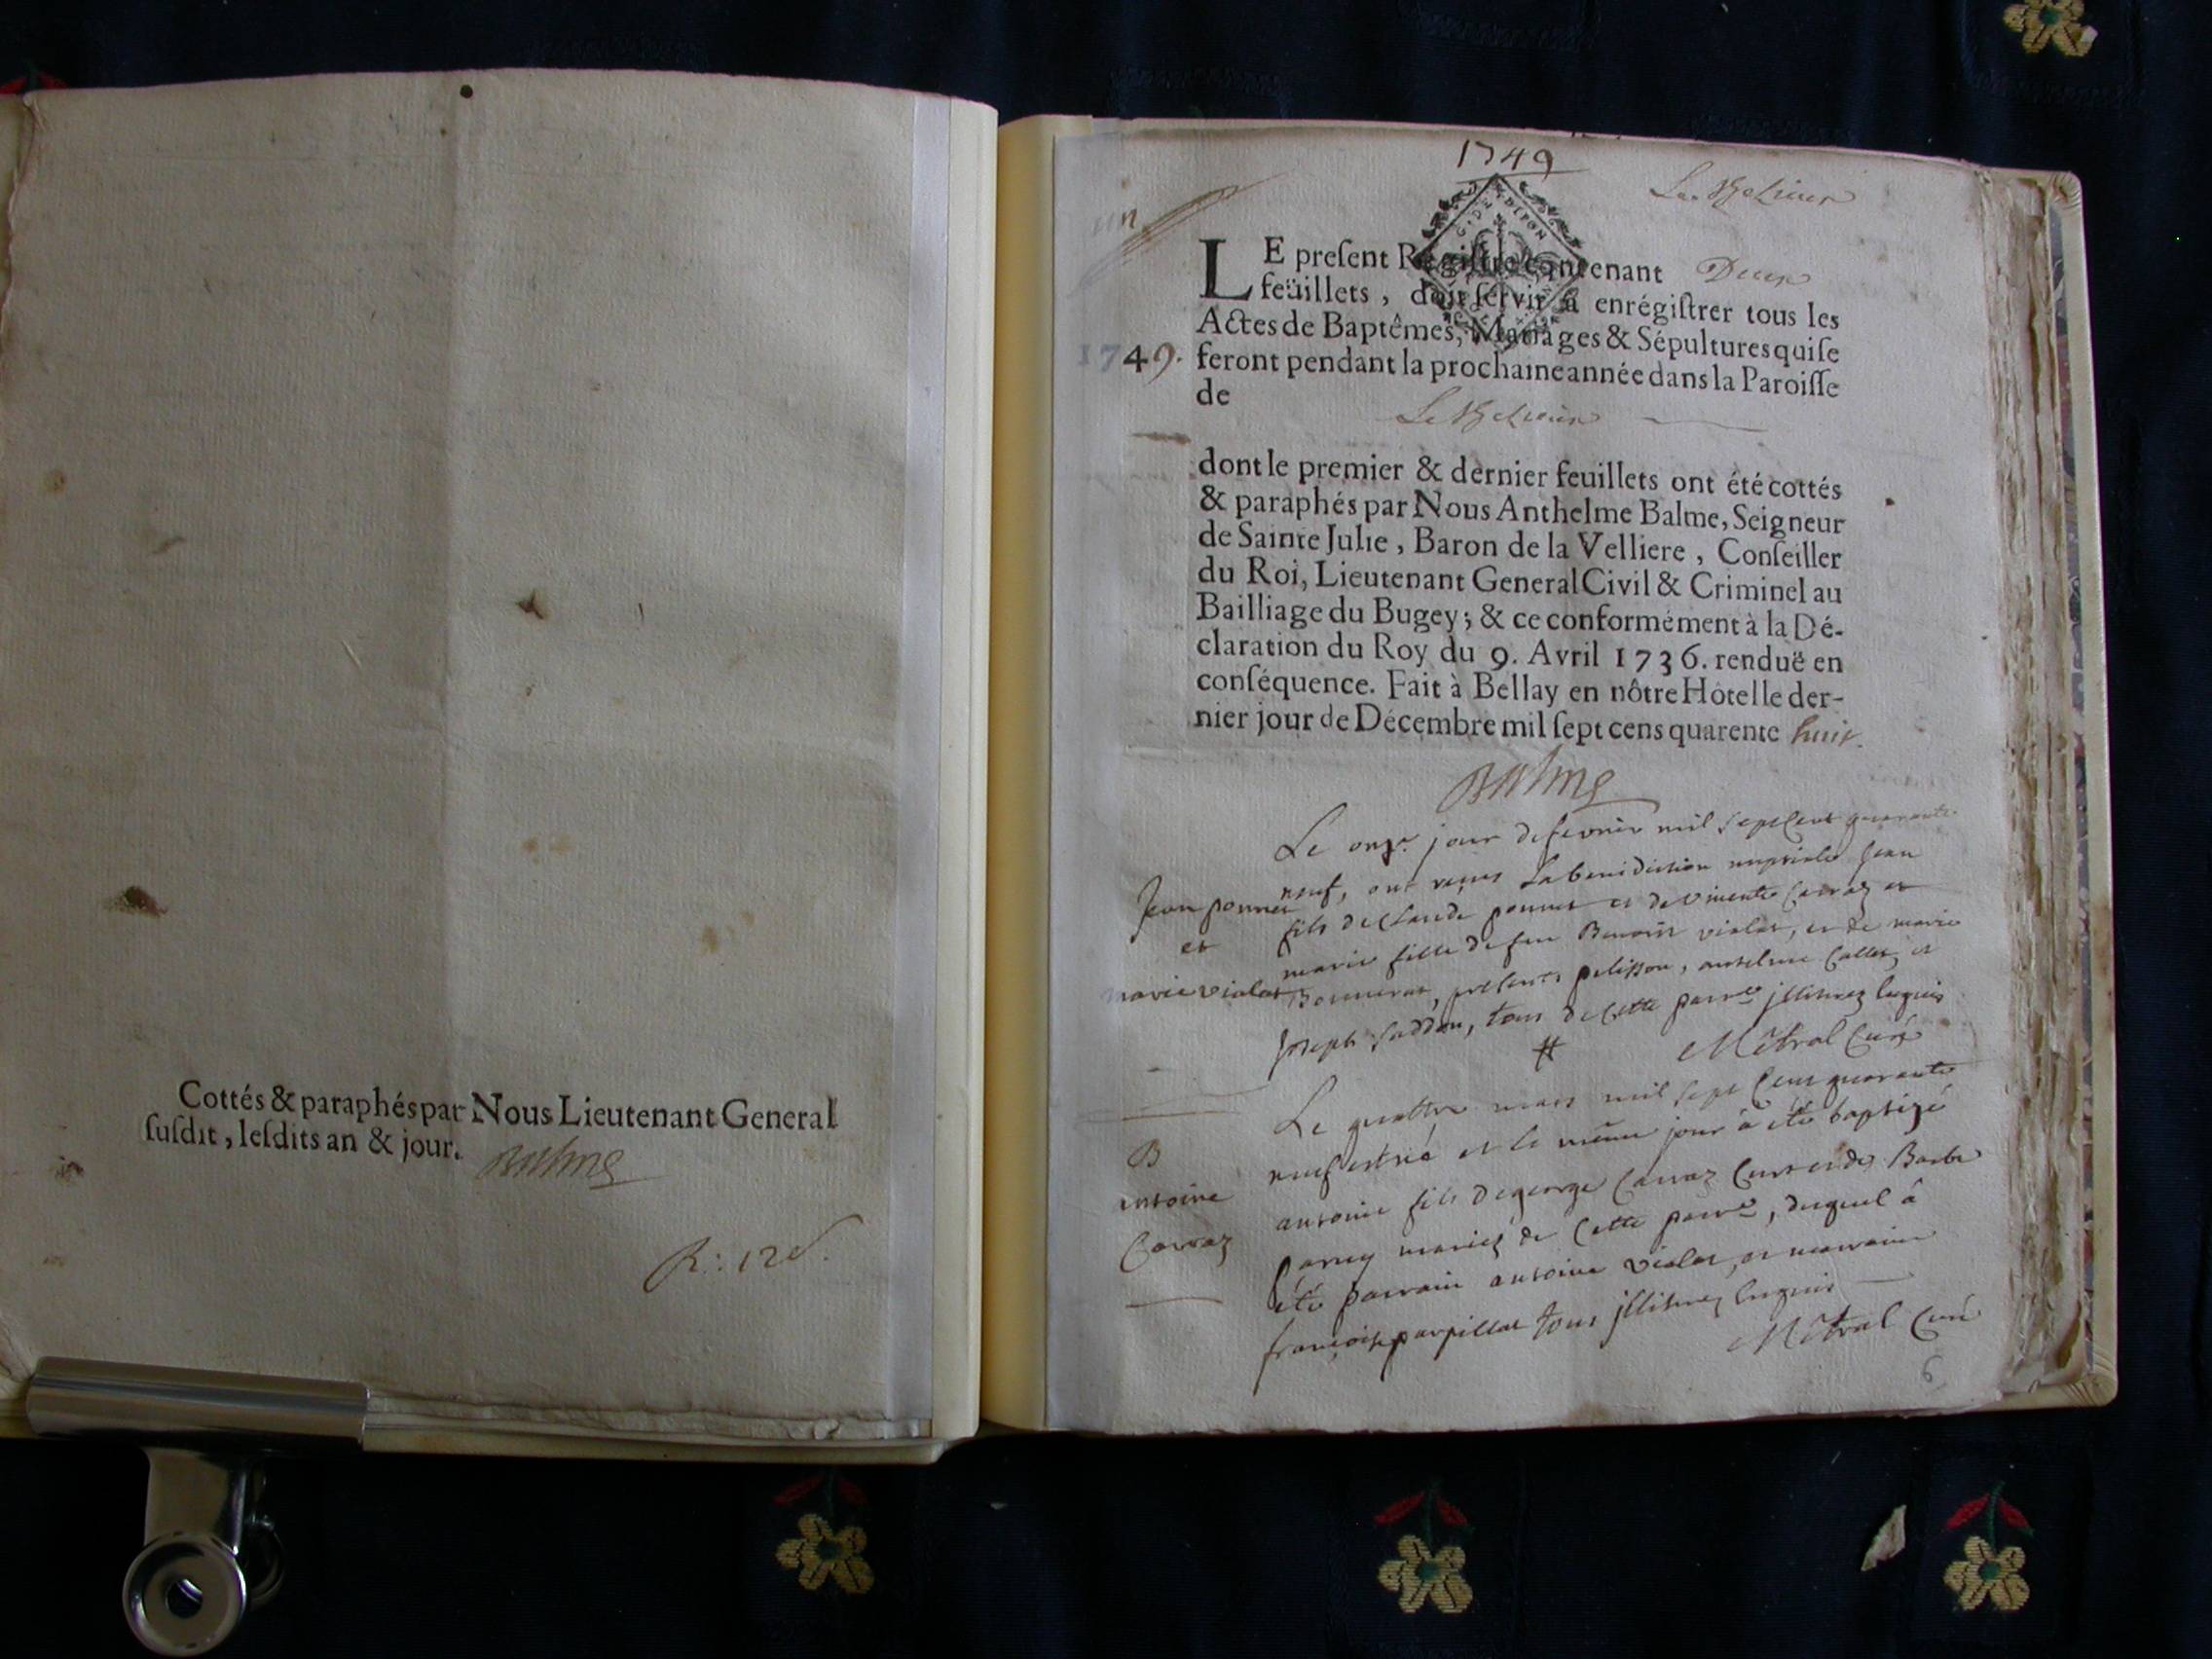 Cottés & paraphés par Nous Lieutenant General
ſuſdit, leſdits an & jour. Balme
R: 12 s.
1749
un
LE preſent Regiſtre contenant Deux
feüillets, doit ſervir à enrégiſtrer tous les
Actes de Baptêmes, Mariages & Sépultures qui ſe
1749. feront pendant la prochaine année dans la Paroiſſe
de
dont le premier & dernier feuillets ont été cottés
& paraphés par Nous Anthelme Balme, Seigneur
de Sainte Julie, Baron de la Velliere, Conſeiller
du Roi, Lieutenant General Civil & Criminel au
Bailliage du Bugey; & ce conformément à la Dé-
claration du Roy du 9. Avril 1736. renduë en
conſéquence. Fait à Bellay en nôtre Hôtel le der-
nier jour de Décembre mil ſept cens quarente huit.
Balme
Jean ponnet
et
marie violet
Le onze jour de fevrier mil sept cent quarante
neuf, ont reçus La benediction nuptiale Jean
fils de Claude ponnet et de Carraz et
marie fille de feu Benoist violet, et de marie
presents pelisson, anselme Callet, et
Joseph tous de cette parre illitirez requis
Métral Curé
B
antoine
Carraz
Le quattre mars mil sept Cent quarante
neuf est né et le même jour à été baptizé
antoine fils de george Carraz et de Barbe
mariés de Cette parre, duquel à
été parrain antoine violet, et marraine
françoise parpillat tous illitirez requis
Métral Curé
6